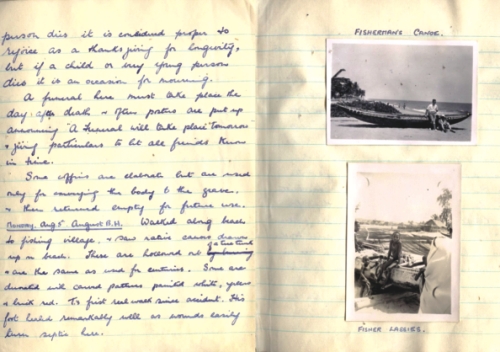 person dies it is considered proper to
rejoice as a thanksgiving for longevity,
but if a child or very young person
dies it is an occasion for mourning.
A funeral here must take place the
day after death & often posters are put up
announcing "A Funeral will take place tomorrow
& giving particulars to let all friends know
in time.
Some coffins are elaborate but are used
only for conveying the body to the grave.
& then returned empty for future use.
Aug 5 August B.H. Walked along beach
to fishing village, & saw native canoes drawn
up on beach. These are hollowed out
& are the same as used for centuries. Some are
decorated with carved patterns painted white, yellow
& brick red. To first real walk since accident. His
foot healed remarkably well as wounds easily
turn septic here.
FISHERMANS CANOE.
FISHER LASSIES.